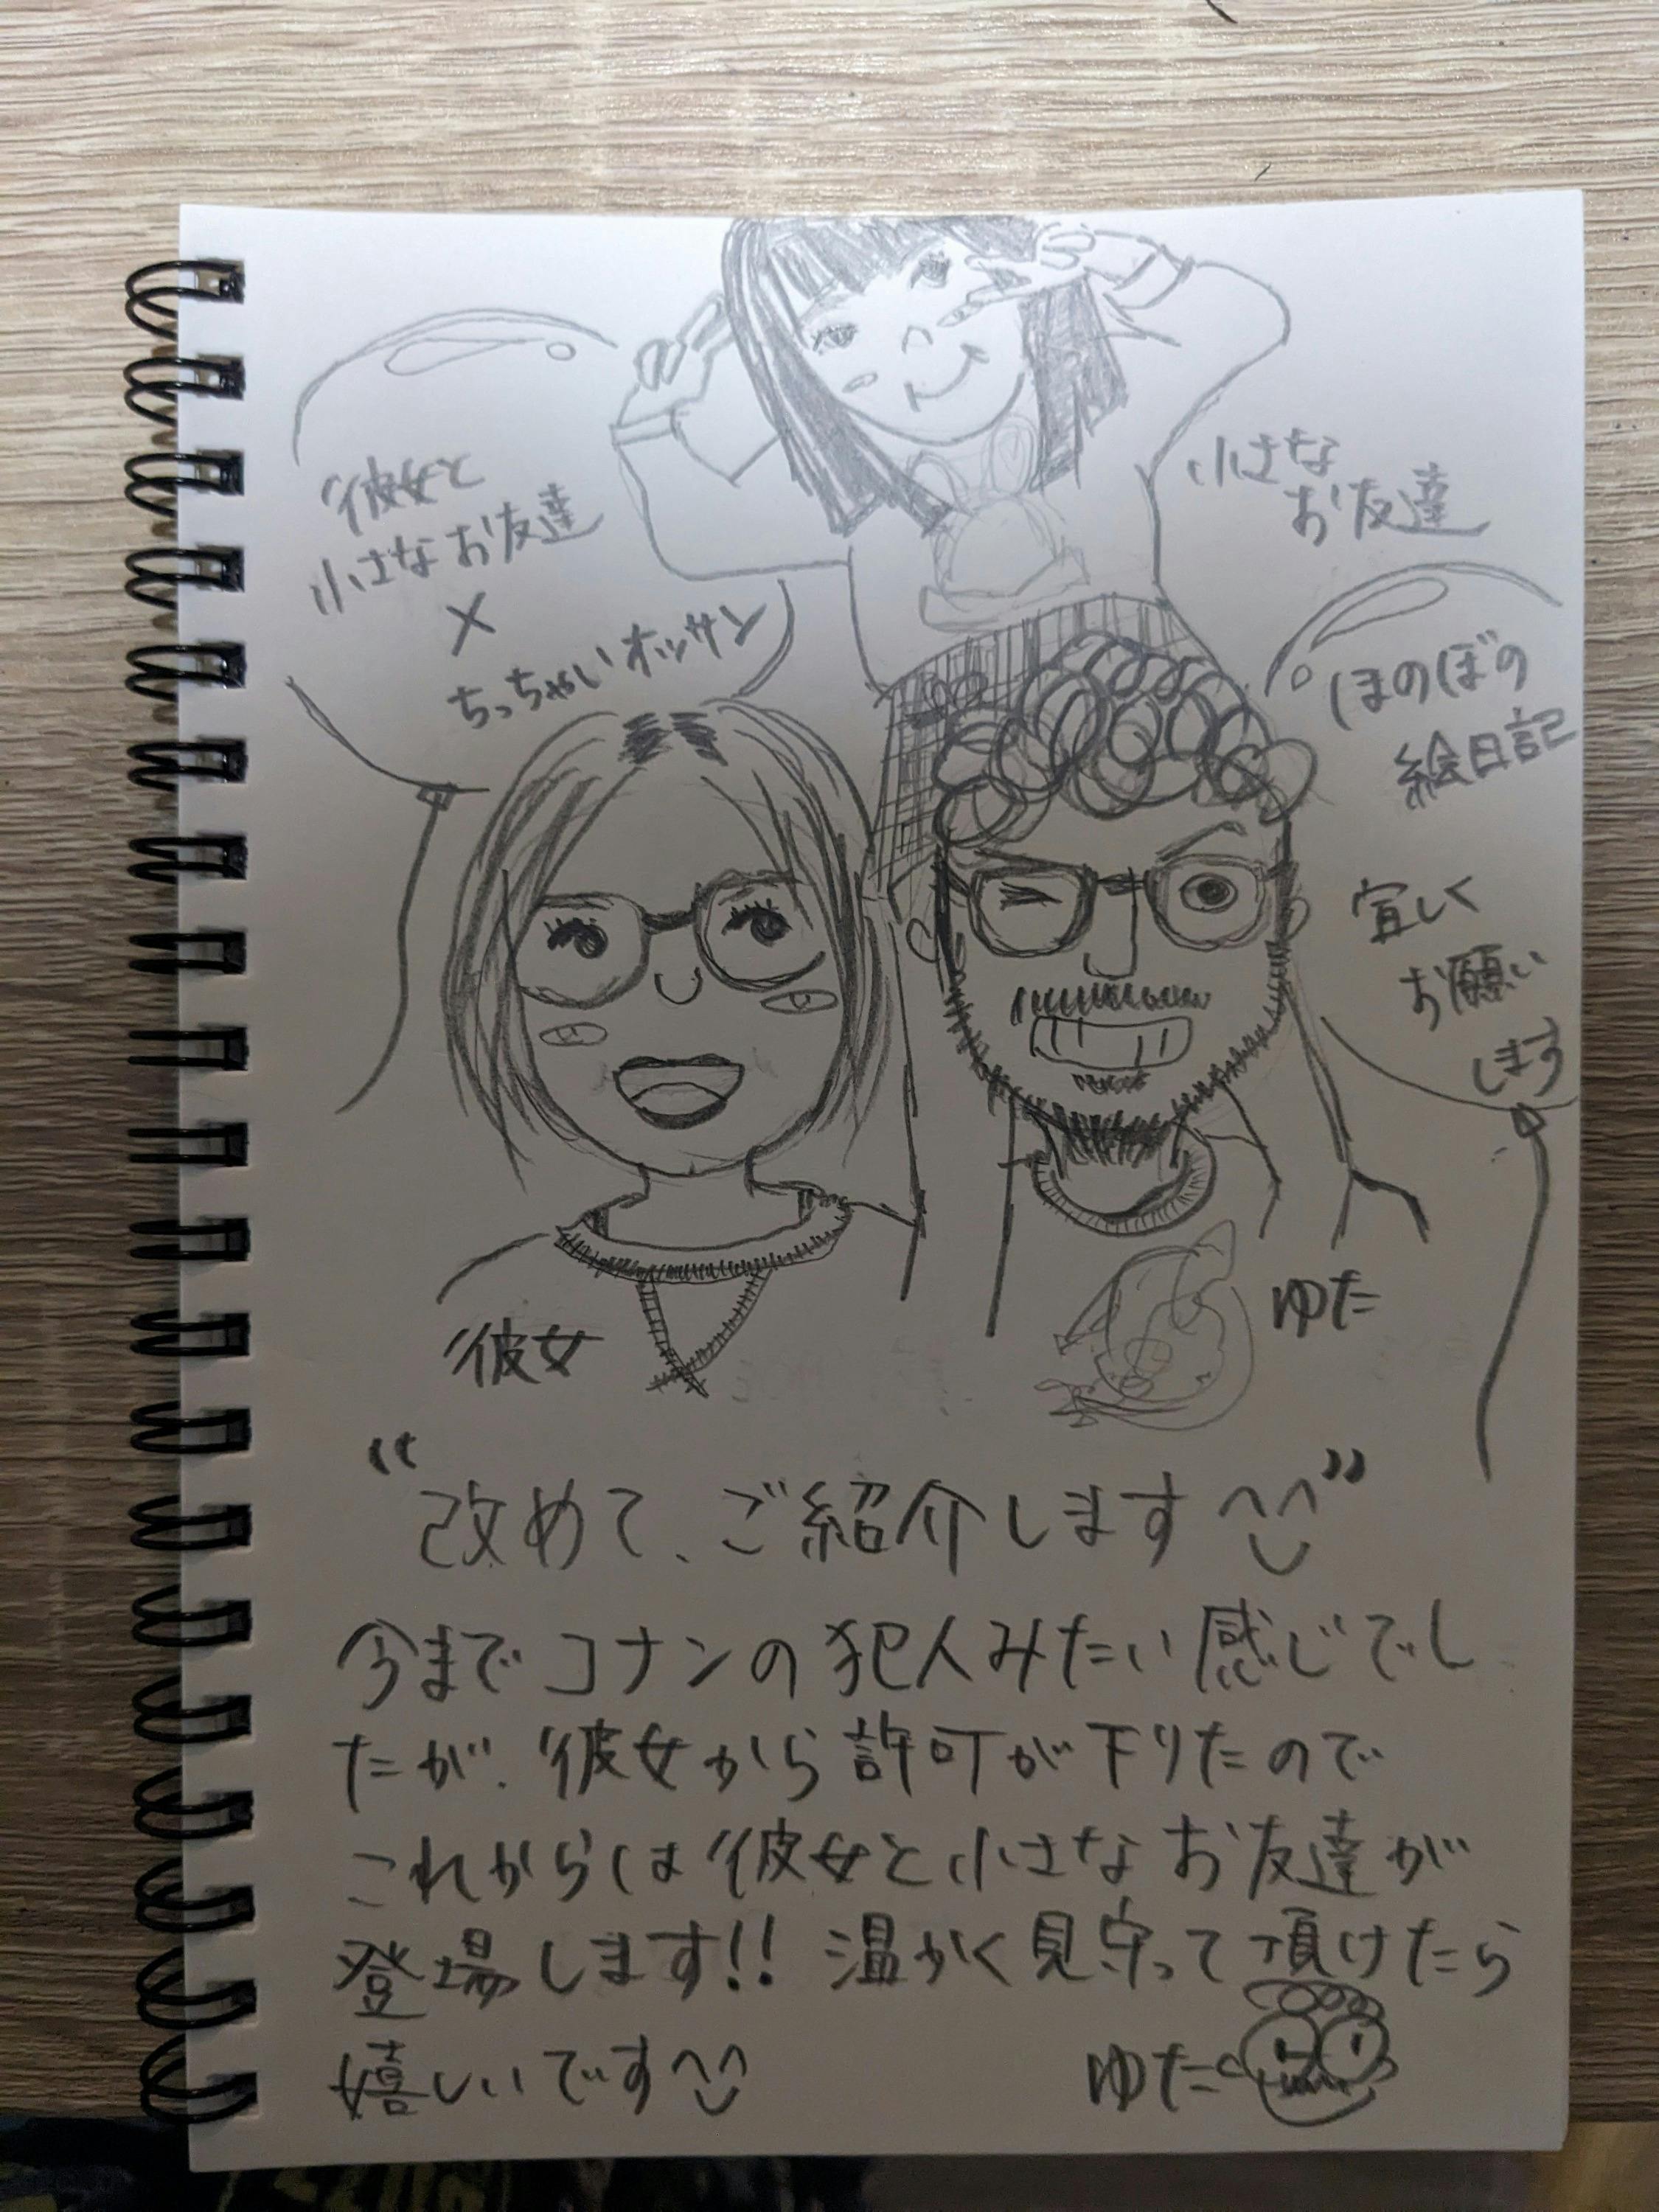 彼女と
小さなお友達
×
ちっちゃいオッサン
小さな
お友達
ほのぼの
絵日記
宜しく
お願い
します
彼女
ゆた
“改めて、ご紹介します^^”
今までコナンの犯人みたい感じでし
たが、彼女から許可が下りたので
これからは彼女と小さなお友達が
登場します!! 温かく見守って頂けたら
嬉しいです^^
ゆた